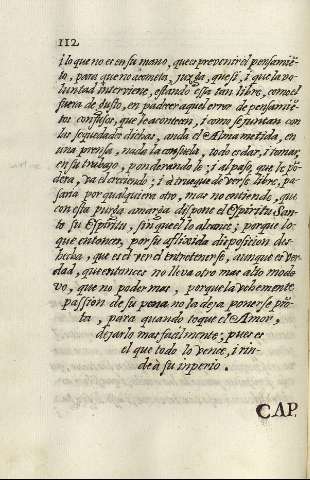 112
i lo que no es en su mano, que es prevenir el pensamiē-
to, para que no acometa, juzga, que si, i que la vo-
luntad interviene, estando essa tan libre, como el
fuera de gusto, en padecer aquel error de pensamiē-
tos confusos, que le acontecen, i como se juntan con
las sequedades dichas, anda el Alma metida, en
una prensa, nada la consuela, todo es dar, i tomar,
en su trabajo, ponderandole; i al paso, que le pō-
dera, va el creciendo; i a trueque de verse libre, pa-
saria por qualquiera otro, mas no entiendo, que
con esta purga amarga dispone el Espiritu San-
to su Espiritu, sin que el lo alcance; porque lo-
que entonces, por su afligida disposicion des-
hecha, que es el ver el entretenerse, aunque es ver-
dad, que entonces no lleva otro mas alto modo
vo, que no poder mas, porque la vehemente
passion de su pena no la dexa ponerse pōr-
ta, para quando toque el Amor,
dejarlo mas facilmente; pues es
el que todo lo vence, i rin-
de à su inperio.
CAP.